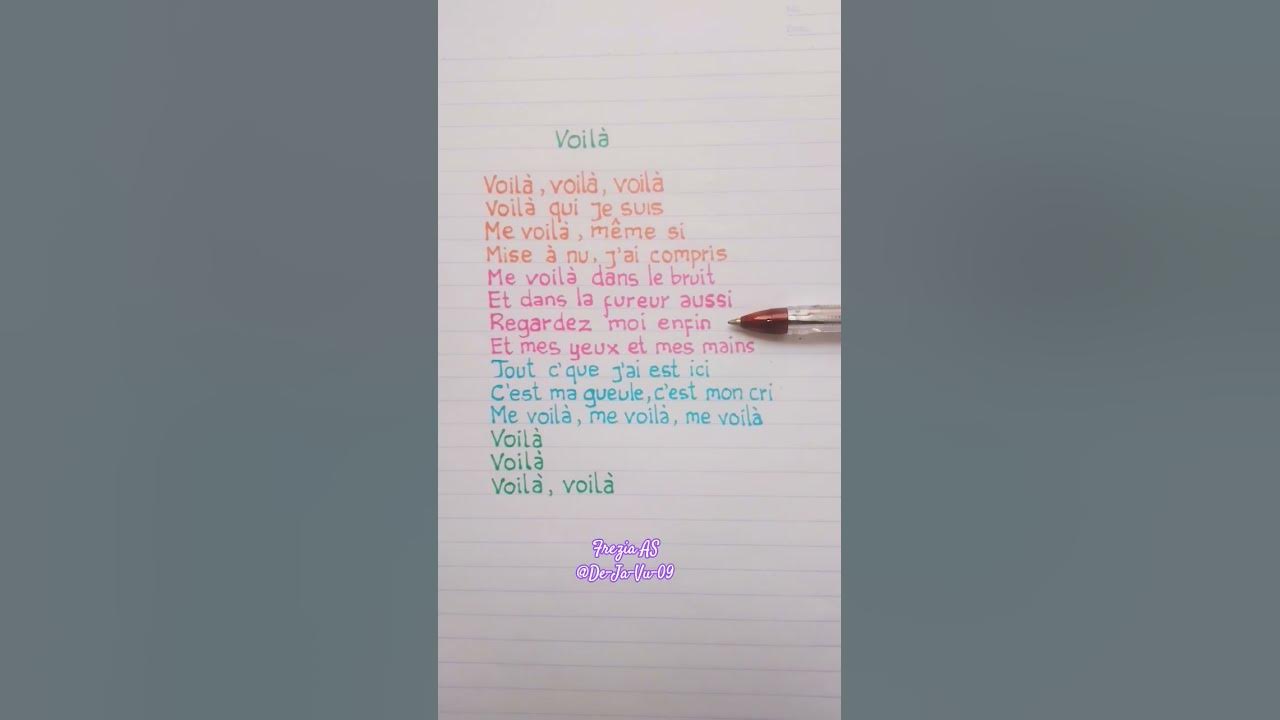 Voilà
Voilà, voilà, voilà
Voilà qui je suis
Me voilà, même si
Mise à nu, j'ai compris
Me voilà dans le bruit
Et dans la fureur aussi
Regardez moi enfin
Et mes yeux et mes mains
Tout c'que j'ai est ici
C'est ma gueule, c'est mon cri
Me voilà, me voilà, me voilà
Voilà
Voilà
Voilà, voilà
Frezia AS
@De-Ja-Vu-09